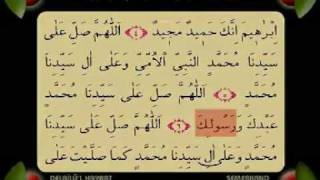 اِبْرٰهِيمَ اِنَّكَ حَمِيدٌ مَجِيدٌ ﴿٤﴾ اَللّٰهُمَّ صَلِّ عَلٰى
سَيِّدِنَا مُحَمَّدٍ النَّبِيِّ الْاُمِّيِّ وَعَلٰى اٰلِ سَيِّدِنَا
مُحَمَّدٍ ﴿٥﴾ اَللّٰهُمَّ صَلِّ عَلٰى سَيِّدِنَا مُحَمَّدٍ
عَبْدِكَ وَرَسُولِكَ ﴿٦﴾ اَللّٰهُمَّ صَلِّ عَلٰى سَيِّدِنَا
مُحَمَّدٍ وَعَلٰى اٰلِ سَيِّدِنَا مُحَمَّدٍ كَمَا صَلَّيْتَ عَلٰى
DELAİLÜ'L HAYRAT SEMERKAND